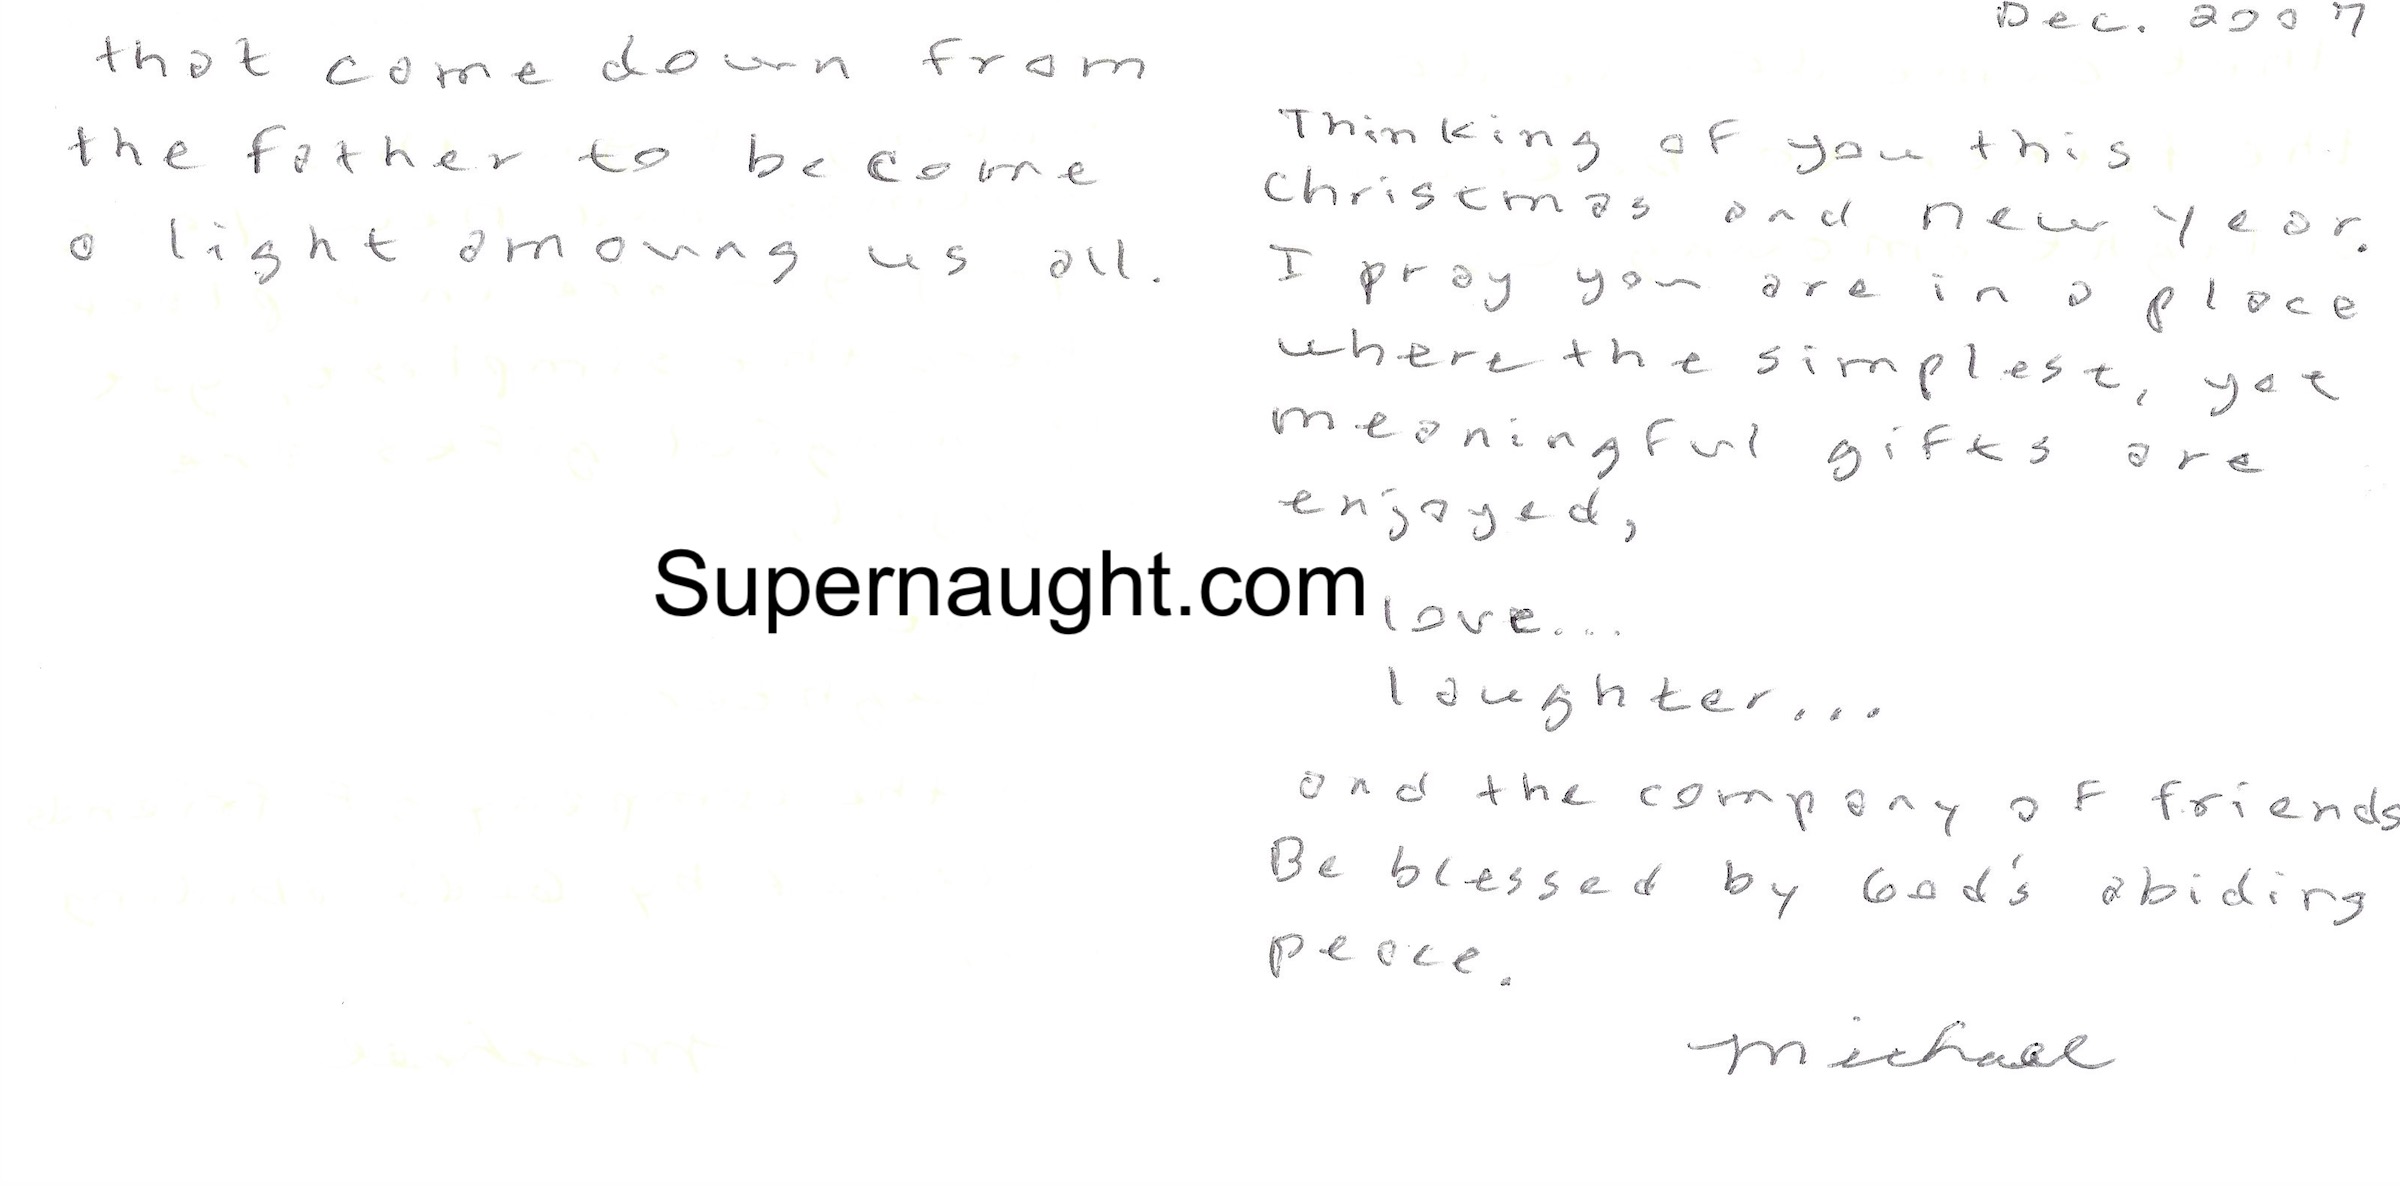 that come down from
the father to become
a light amoung us all.
Dec. 2007
Thinking of you this
Christmas and new year.
I pray you are in a place
where the simplest, yet
meaningful gifts are
enjoyed,
love...
laughter...
and the company of friends
Be blessed by God's abiding
peace.
Michael
Supernaught.com